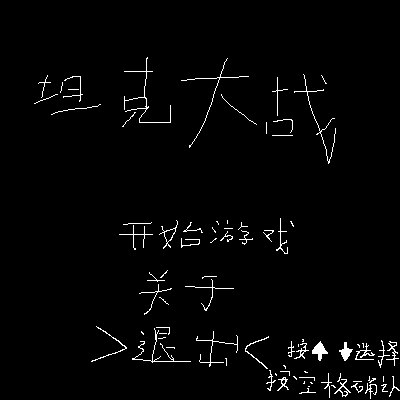 坦克大战
开始游戏
关于
>退出<
按↑↓选择
按空格确认